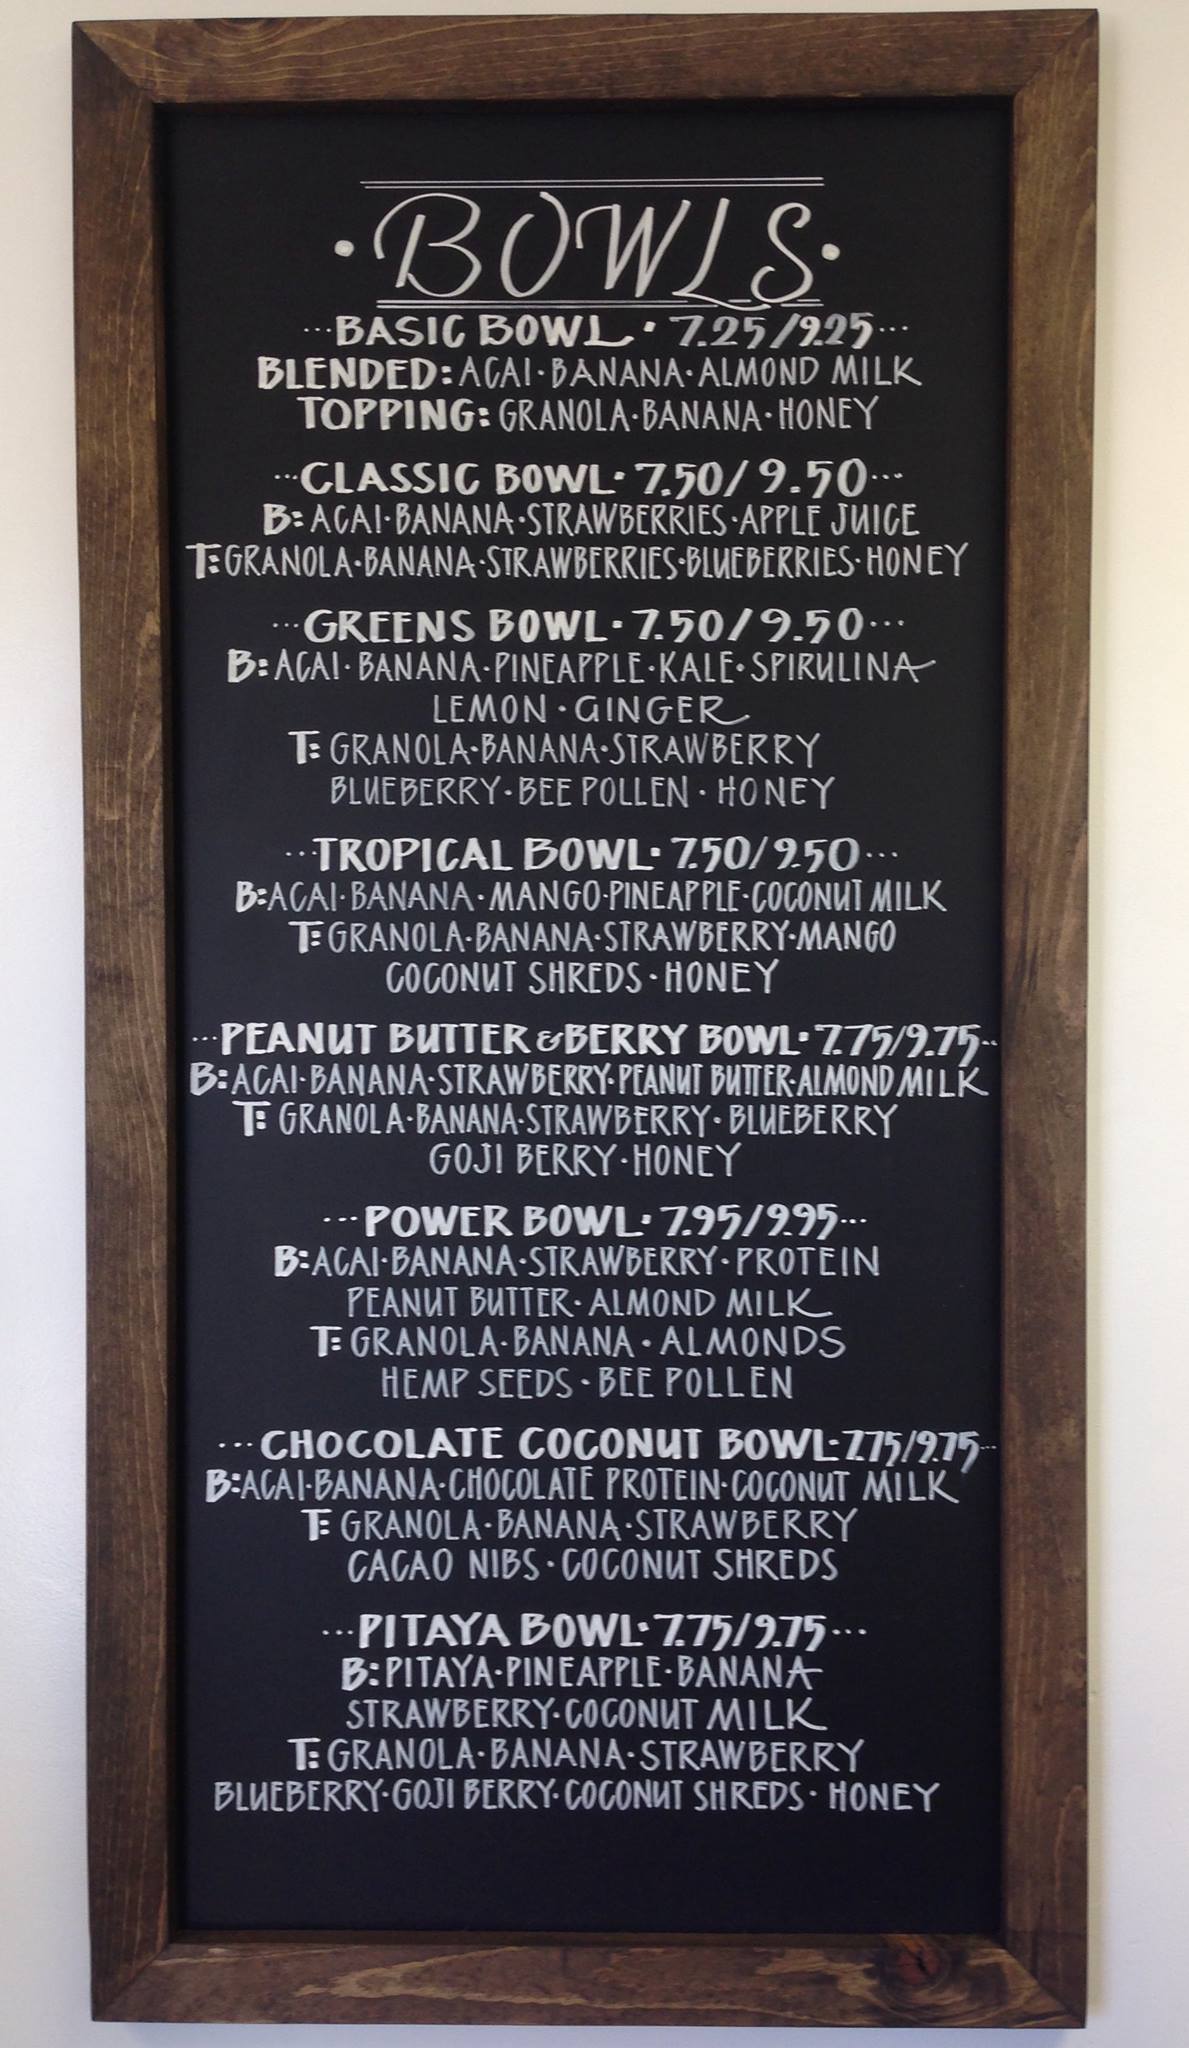 · BOWLS ·
...BASIC BOWL · 7.25/9.25...
BLENDED: ACAI · BANANA · ALMOND MILK
TOPPING: GRANOLA · BANANA · HONEY
...CLASSIC BOWL · 7.50/9.50...
B: ACAI · BANANA · STRAWBERRIES · APPLE JUICE
T: GRANOLA · BANANA · STRAWBERRIES · BLUEBERRIES · HONEY
...GREENS BOWL · 7.50/9.50...
B: ACAI · BANANA · PINEAPPLE · KALE · SPIRULINA
LEMON · GINGER
T: GRANOLA · BANANA · STRAWBERRY
BLUEBERRY · BEE POLLEN · HONEY
...TROPICAL BOWL · 7.50/9.50...
B: ACAI · BANANA · MANGO · PINEAPPLE · COCONUT MILK
T: GRANOLA · BANANA · STRAWBERRY · MANGO
COCONUT SHREDS · HONEY
...PEANUT BUTTER & BERRY BOWL · 7.75/9.75...
B: ACAI · BANANA · STRAWBERRY · PEANUT BUTTER · ALMOND MILK
T: GRANOLA · BANANA · STRAWBERRY · BLUEBERRY
GOJI BERRY · HONEY
...POWER BOWL · 7.95/9.95...
B: ACAI · BANANA · STRAWBERRY · PROTEIN
PEANUT BUTTER · ALMOND MILK
T: GRANOLA · BANANA · ALMONDS
HEMP SEEDS · BEE POLLEN
...CHOCOLATE COCONUT BOWL · 7.75/9.75...
B: ACAI · BANANA · CHOCOLATE PROTEIN · COCONUT MILK
T: GRANOLA · BANANA · STRAWBERRY
CACAO NIBS · COCONUT SHREDS
...PITAYA BOWL · 7.75/9.75...
B: PITAYA · PINEAPPLE · BANANA
STRAWBERRY · COCONUT MILK
T: GRANOLA · BANANA · STRAWBERRY
BLUEBERRY · GOJI BERRY · COCONUT SHREDS · HONEY